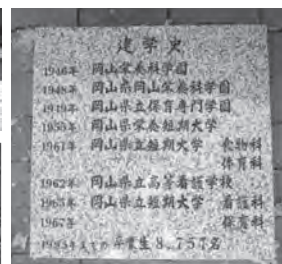 建学史
1946年 岡山栄養科学園
1948年 岡山県岡山栄養科学園
1949年 岡山県立保育専門学園
1953年 岡山県栄養短期大学
1961年 岡山県立短期大学 食物科
体育科
1962年 岡山県立高等看護学校
1965年 岡山県立短期大学 看護科
1967年 保育科
卒業生8,757名